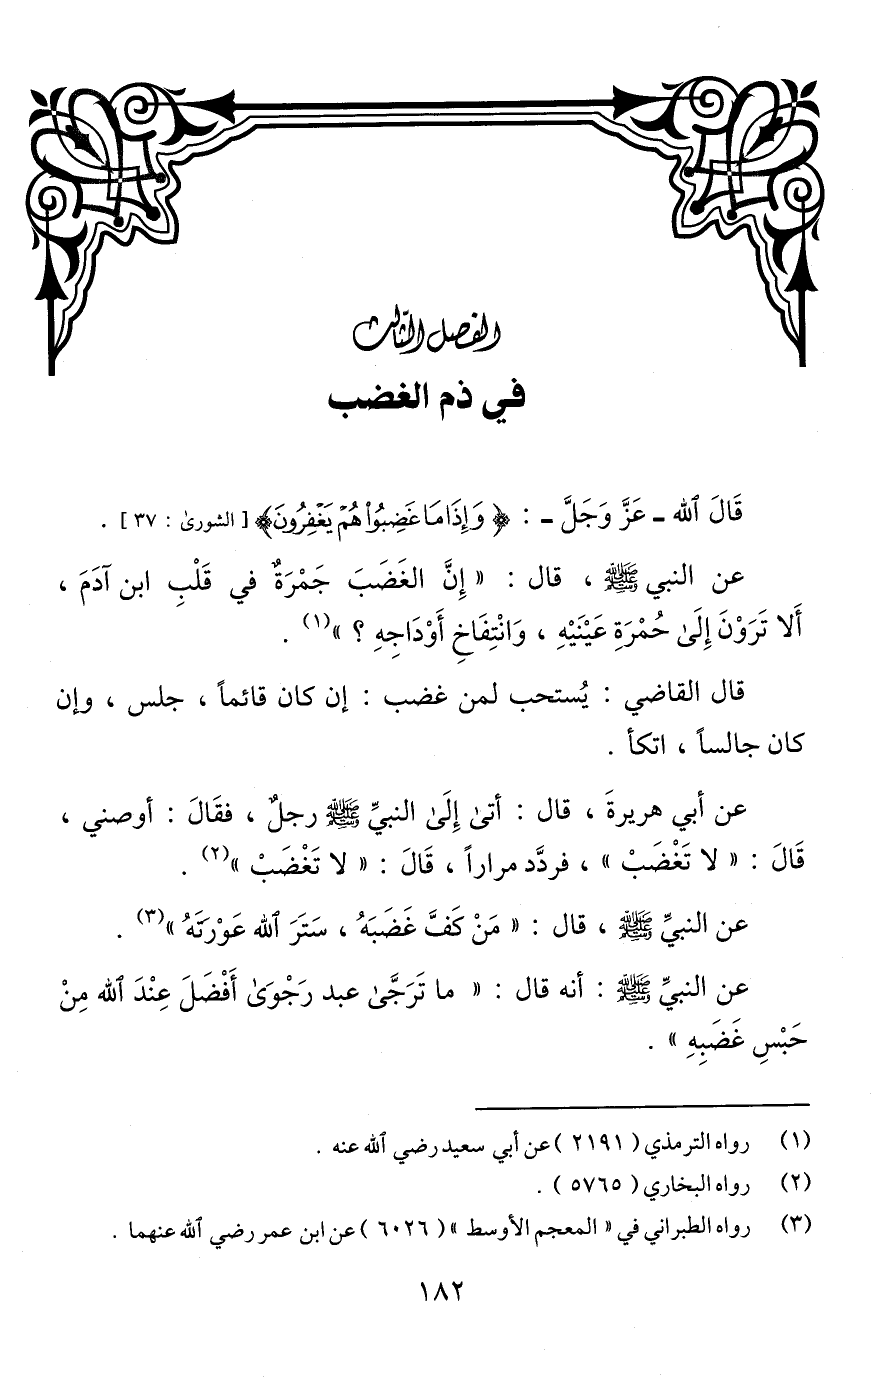 الفصل الثّالث
في ذم الغضب
قَالَ ٱلله ـ عَزَّ وَجَلَّ ـ : ﴿ وَإِذَا مَا غَضِبُوا۟ هُمْ يَغْفِرُونَ﴾ [ الشورىٰ : ٣٧ ] .
عن النبي ﷺ ، قال : « إِنَّ الغَضَبَ جَمْرَةٌ في قَلْبِ ابن آدَمَ ،
أَلا تَرَوْنَ إِلَىٰ حُمْرَةِ عَيْنَيْهِ ، وَانْتِفَاخِ أَوْدَاجِهِ ؟ »(١) .
قال القاضي : يُستحب لمن غضب : إن كان قائماً ، جلس ، وإن
كان جالساً ، اتكأ .
عن أبي هريرةَ ، قال : أتىٰ إِلَىٰ النبيِّ ﷺ رجلٌ ، فقَالَ : أوصني ،
قَالَ : « لا تَغْضَبْ » ، فردَّد مراراً ، قَالَ : « لا تَغْضَبْ »(٢) .
عن النبيِّ ﷺ ، قال : « مَنْ كَفَّ غَضَبَهُ ، سَتَرَ ٱلله عَوْرَتَهُ »(٣) .
عن النبيِّ ﷺ : أنه قال : « ما تَرَجَّىٰ عبد رَجْوَىٰ أَفْضَلَ عِنْدَ ٱلله مِنْ
حَبْسِ غَضَبِهِ » .
(١) رواه الترمذي ( ٢١٩١ ) عن أبي سعيد رضي ٱلله عنه .
(٢) رواه البخاري ( ٥٧٦٥ ) .
(٣) رواه الطبراني في « المعجم الأوسط » ( ٦٠٢٦ ) عن ابن عمر رضي ٱلله عنهما .
١٨٢